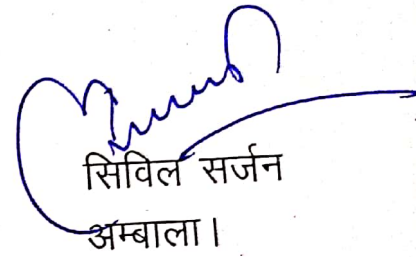 सिविल सर्जन
अम्बाला।